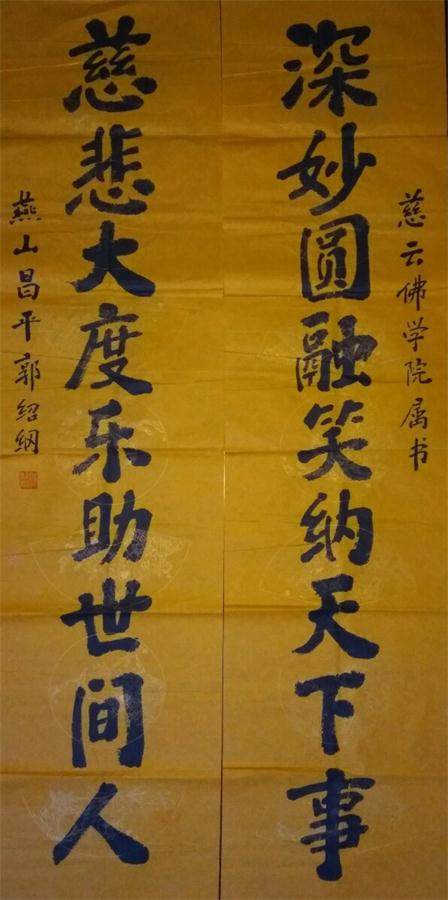 慈云佛学院属书
深妙圆融笑纳天下事
慈悲大度乐助世间人
燕山昌平郭绍纲